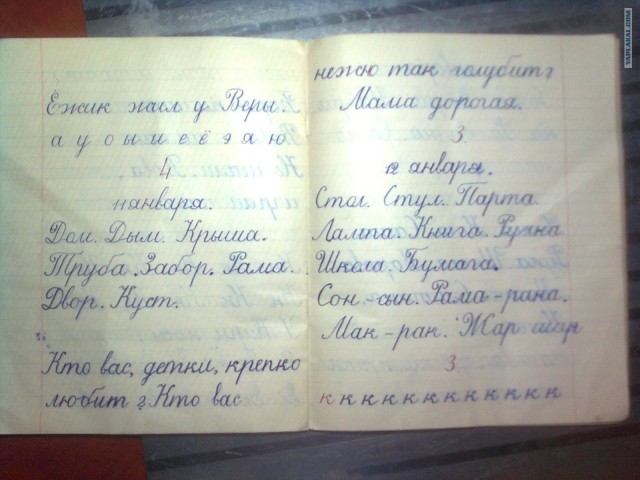 Ежик жил у Веры.
а у о ы и е ё э я ю
4
января.
Дом. Дым. Крыша.
Труба. Забор. Рама.
Двор. Куст.
Кто вас, детки, крепко
любит? Кто вас
нежно так голубит?
Мама дорогая.
3
января.
Стол. Стул. Парта.
Лампа. Книга. Ручка
Школа. Бумага.
Сон-сын. Рама-рана.
Мак-рак. Жар шар
3
к к к к к к к к к к к к